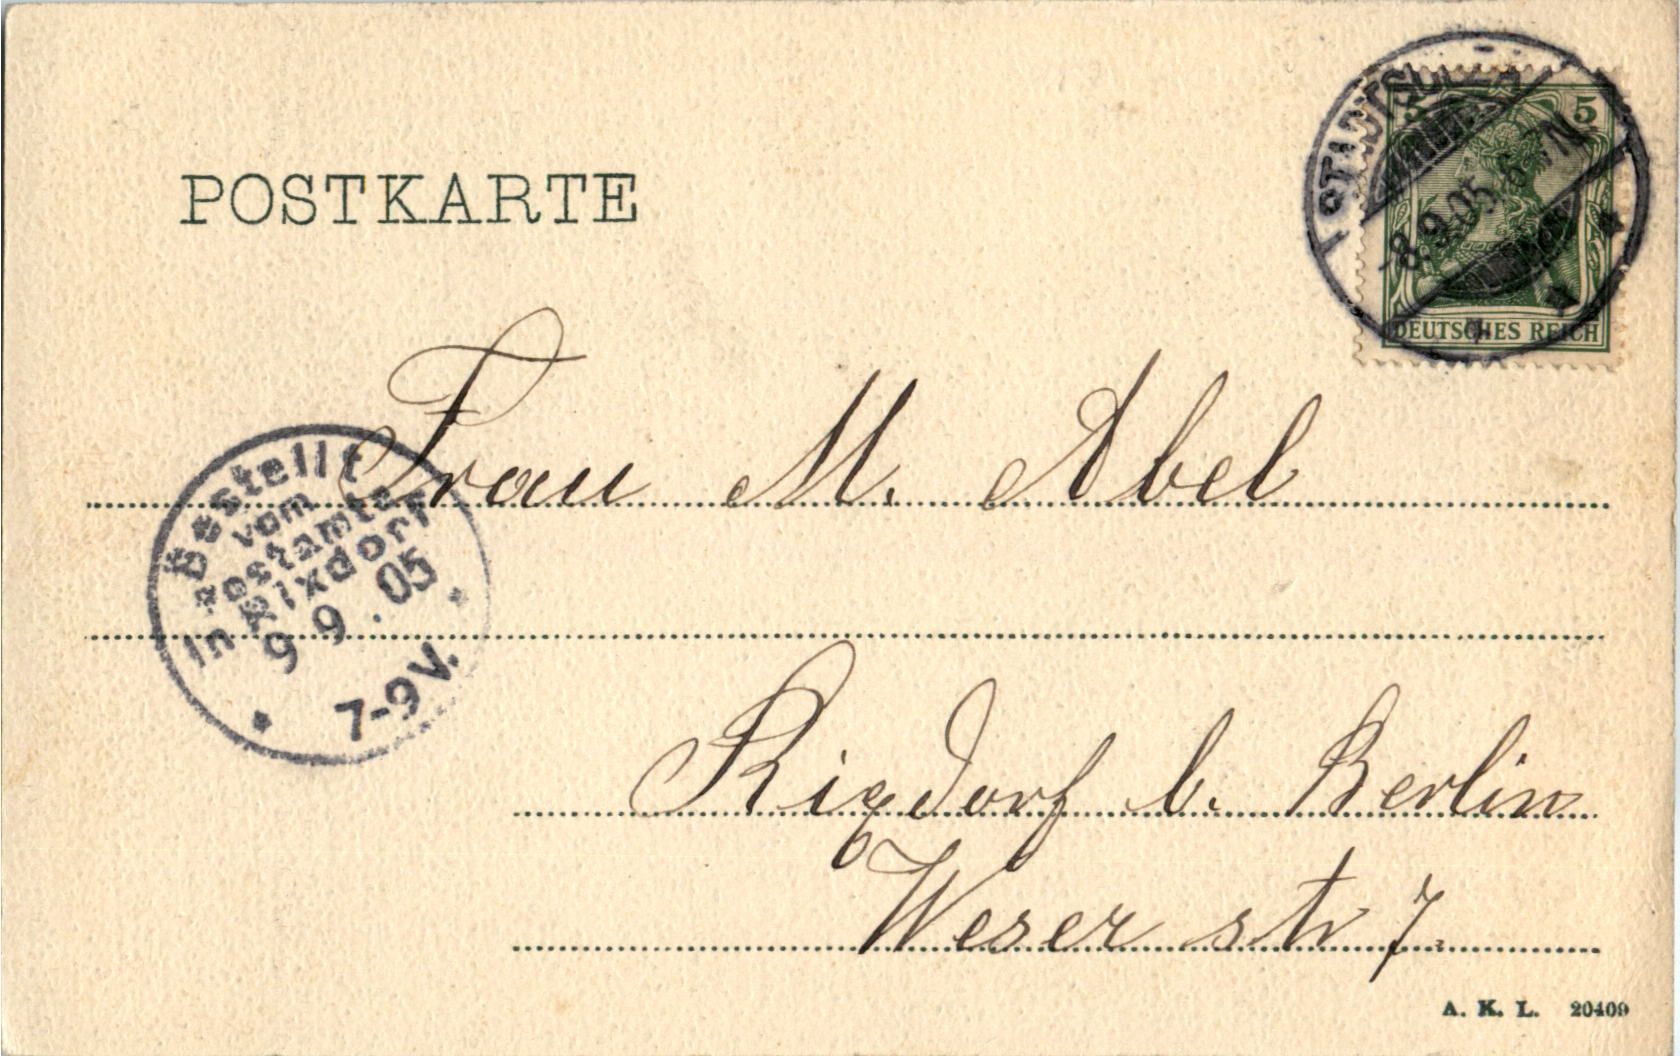 POSTKARTE
STADTSULZA
-8.9.05. 6-7N
5 5
DEUTSCHES REICH
Frau M. Abel
Bestellt
vom
Postamte
in Rixdorf
9 9. 05
7-9V.
Rixdorf b. Berlin
Weser str 7.
A. K. L. 20409